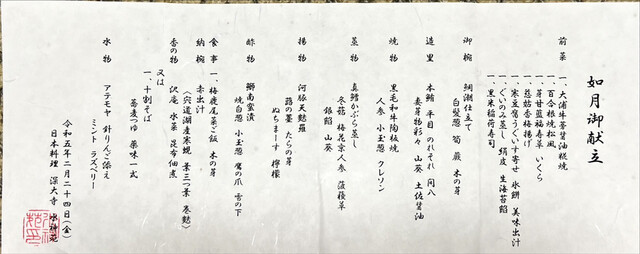 如月御献立
前菜 一、大浦牛蒡醤油糀焼
一、百合根焼松風
一、芽甘藍福寿草 いくら
一、慈姑香梅揚げ
一、寒豆腐うぐいす寄せ 氷餅 美味出汁
一、ぐいのみ蒸し 絹皮 生海苔餡
一、黒米稲荷寿司
御椀 鯛潮仕立て
白髪葱 筍 蕨 木の芽
造里 本鮪 平目 のれそれ 間八
妻芽物彩々 山葵 土佐醤油
焼物 黒毛和牛陶板焼
人参 小玉葱 クレソン
蒸物 真鱈かぶら蒸し
冬菇 梅花京人参 菠薐草
銀餡 山葵
揚物 河豚天麩羅
蕗の薹 たらの芽
ぬちまーす 檸檬
酢物 鰤南蛮漬
焼白葱 小玉葱 鷹の爪 雪の下
食事 一、梅鹿尾菜ご飯 木の芽
納椀 赤出汁
〈宍道湖産寒蜆 葉三つ葉 巻麩〉
香の物 沢庵 水菜 昆布佃煮
又は
一、十割そば
蕎麦つゆ 薬味一式
水物 アテモヤ 針りんご添え
ミント ラズベリー
令和五年二月二十四日(金)
日本料理 深大寺 水神苑